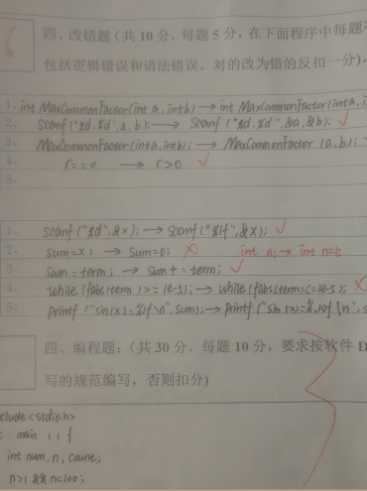 四、改错题（共 10 分，每题 5 分，在下面程序中每题
包括逻辑错误和语法错误，对的改为错的反扣一分）,
1. int MaxCommonFactor(int a, int b) → int MaxCommonFactor(int a, i
2. Scanf ("%d,%d",a,b); → Scanf ("%d,%d",&a,&b); √
3. MaxCommonFactor(int a,int b); → MaxCommonFactor (a,b);
4. r==0 → r>0 √
5.
1. scanf("%d",&x); → Scanf("%lf",&x); √
2. sum=x; → Sum=0; × int n; → int n=1;
3. Sum=term; → Sum+=term; √
4. while (fabs(term)>=1e-5); → while (fabs(term)<=1e-5); ×
5. printf ("sin(x)=%lf\n",sum); → printf ("sin(x)=%.10f\n",s
四、编程题：（共 30 分，每题 10 分，要求按软件
写的规范编写，否则扣分）
clude<stdio.h>
main () {
int num, n, count;
n>1 && n<100;